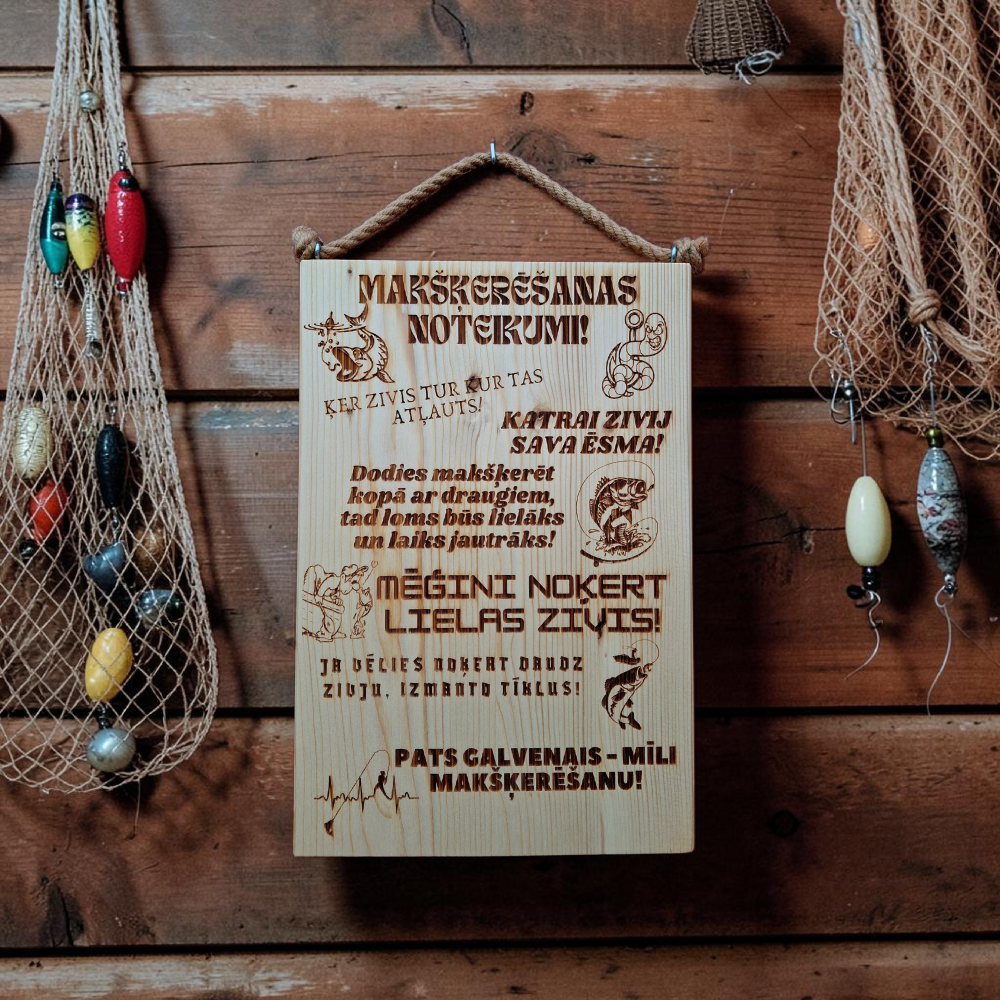 MAKŠĶERĒŠANAS
NOTEIKUMI!
ĶER ZIVIS TUR KUR TAS
ATĻAUTS!
KATRAI ZIVIJ
SAVA ĒSMA!
Dodies makšķerēt
kopā ar draugiem,
tad loms būs lielāks
un laiks jautrāks!
MĒĢINI NOĶERT
LIELAS ZIVIS!
JA VĒLIES NOĶERT DAUDZ
ZIVJU, IZMANTO TĪKLUS!
PATS GALVENAIS - MĪLI
MAKŠĶERĒŠANU!